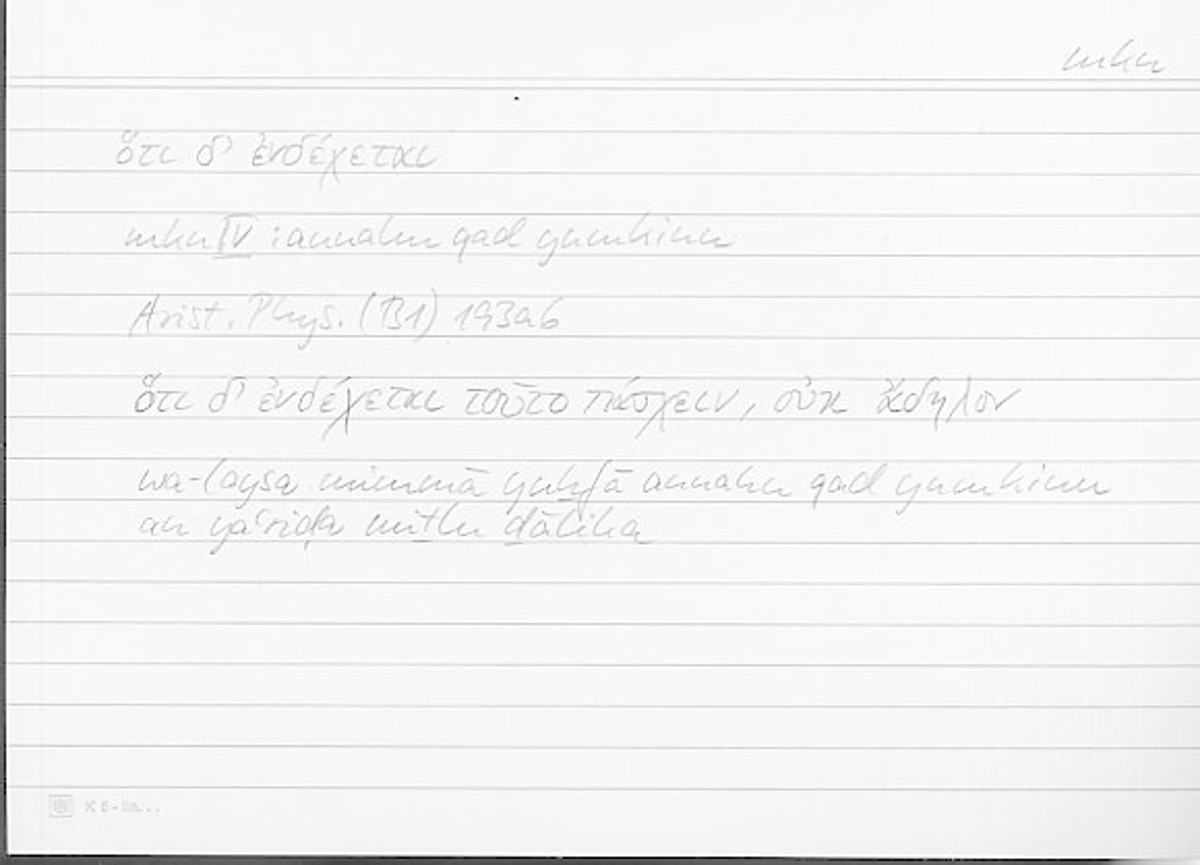 mkn
ὅτι δ' ἐνδέχεται
mkn IV : annahu qad yumkinu
Arist. Phys. (B1) 193a6
ὅτι δ' ἐνδέχεται τοῦτο πάσχειν, οὐκ ἄδηλον
wa-laysa mimmā yuḫfā annahu qad yumkinu
an yaʿriḍa miṯlu ḏālika